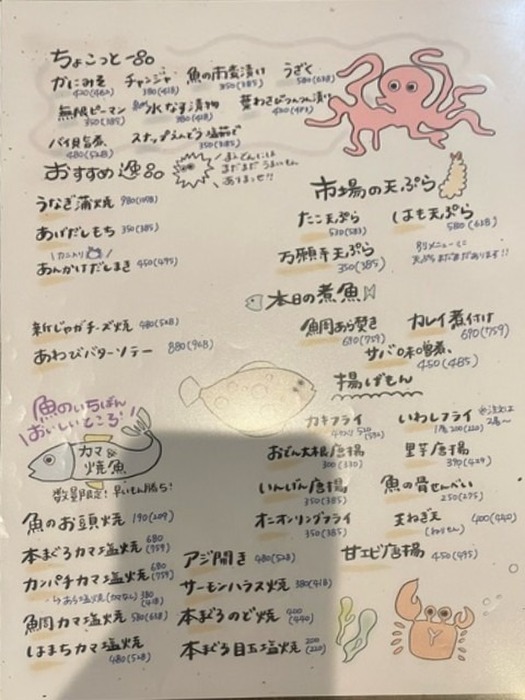 ちょこっと一品
かにみそ 400(440)
チャンジャ 380(418)
魚の南蛮漬け 350(385)
うざく 580(638)
無限ピーマン 350(385)
水なす漬物 380(418)
葉わさびつんつん漬け 400(440)
バイ貝旨煮 480(528)
スナップえんどう塩茹で 350(385)
おすすめ逸品
まだまだうまいもん
ありまっせ!!
うなぎ蒲焼 980(1078)
あげだしもち 350(385)
カニ入り
あんかけだしまき 450(495)
新じゃがチーズ焼 480(528)
あわびバターソテー 880(968)
市場の天ぷら
たこ天ぷら 530(583)
はも天ぷら 580(638)
万願寺天ぷら 350(385)
別メニューに
天ぷらまだまだあります!!
本日の煮魚
鯛あら焚き 690(759)
カレイ煮付け 690(759)
サバ味噌煮 450(485)
揚げもん
カキフライ
いわしフライ 1尾200(220)
おでん大根唐揚 300(330)
里芋唐揚 390(429)
いんげん唐揚 350(385)
魚の骨せんべい 250(275)
オニオンリングフライ 350(385)
玉ねぎ天 400(440)
甘エビ唐揚 450(495)
魚のいちばん
おいしいところ!!
カマ&
焼魚
数量限定!早いもん勝ち!
魚のお頭焼 190(209)
本まぐろカマ塩焼 680(759)
カンパチカマ塩焼 680(759)
あら塩焼(カマなし) 380(418)
鯛カマ塩焼 580(638)
はまちカマ塩焼 480(528)
アジ開き 480(528)
サーモンハラス焼 380(418)
本まぐろのど焼 400(440)
本まぐろ目玉塩焼 200(220)